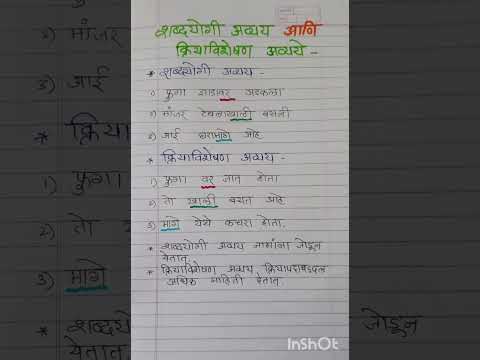 शब्दयोगी अव्यय आणि
क्रियाविशेषण अव्यये -
* शब्दयोगी अव्यय -
१) फुगा झाडावर अडकला
२) मांजर टेबलाखाली बसली
३) आई घरामागे आहे
* क्रियाविशेषण अव्यय -
१) फुगा वर जात होता
२) तो खाली बसत आहे
३) मागे येथे कचरा होता.
* शब्दयोगी अव्यय नामांना जोडून
येतात.
* क्रियाविशेषण अव्यय क्रियापदाबद्दल
अधिक माहिती देतात.
InShOt